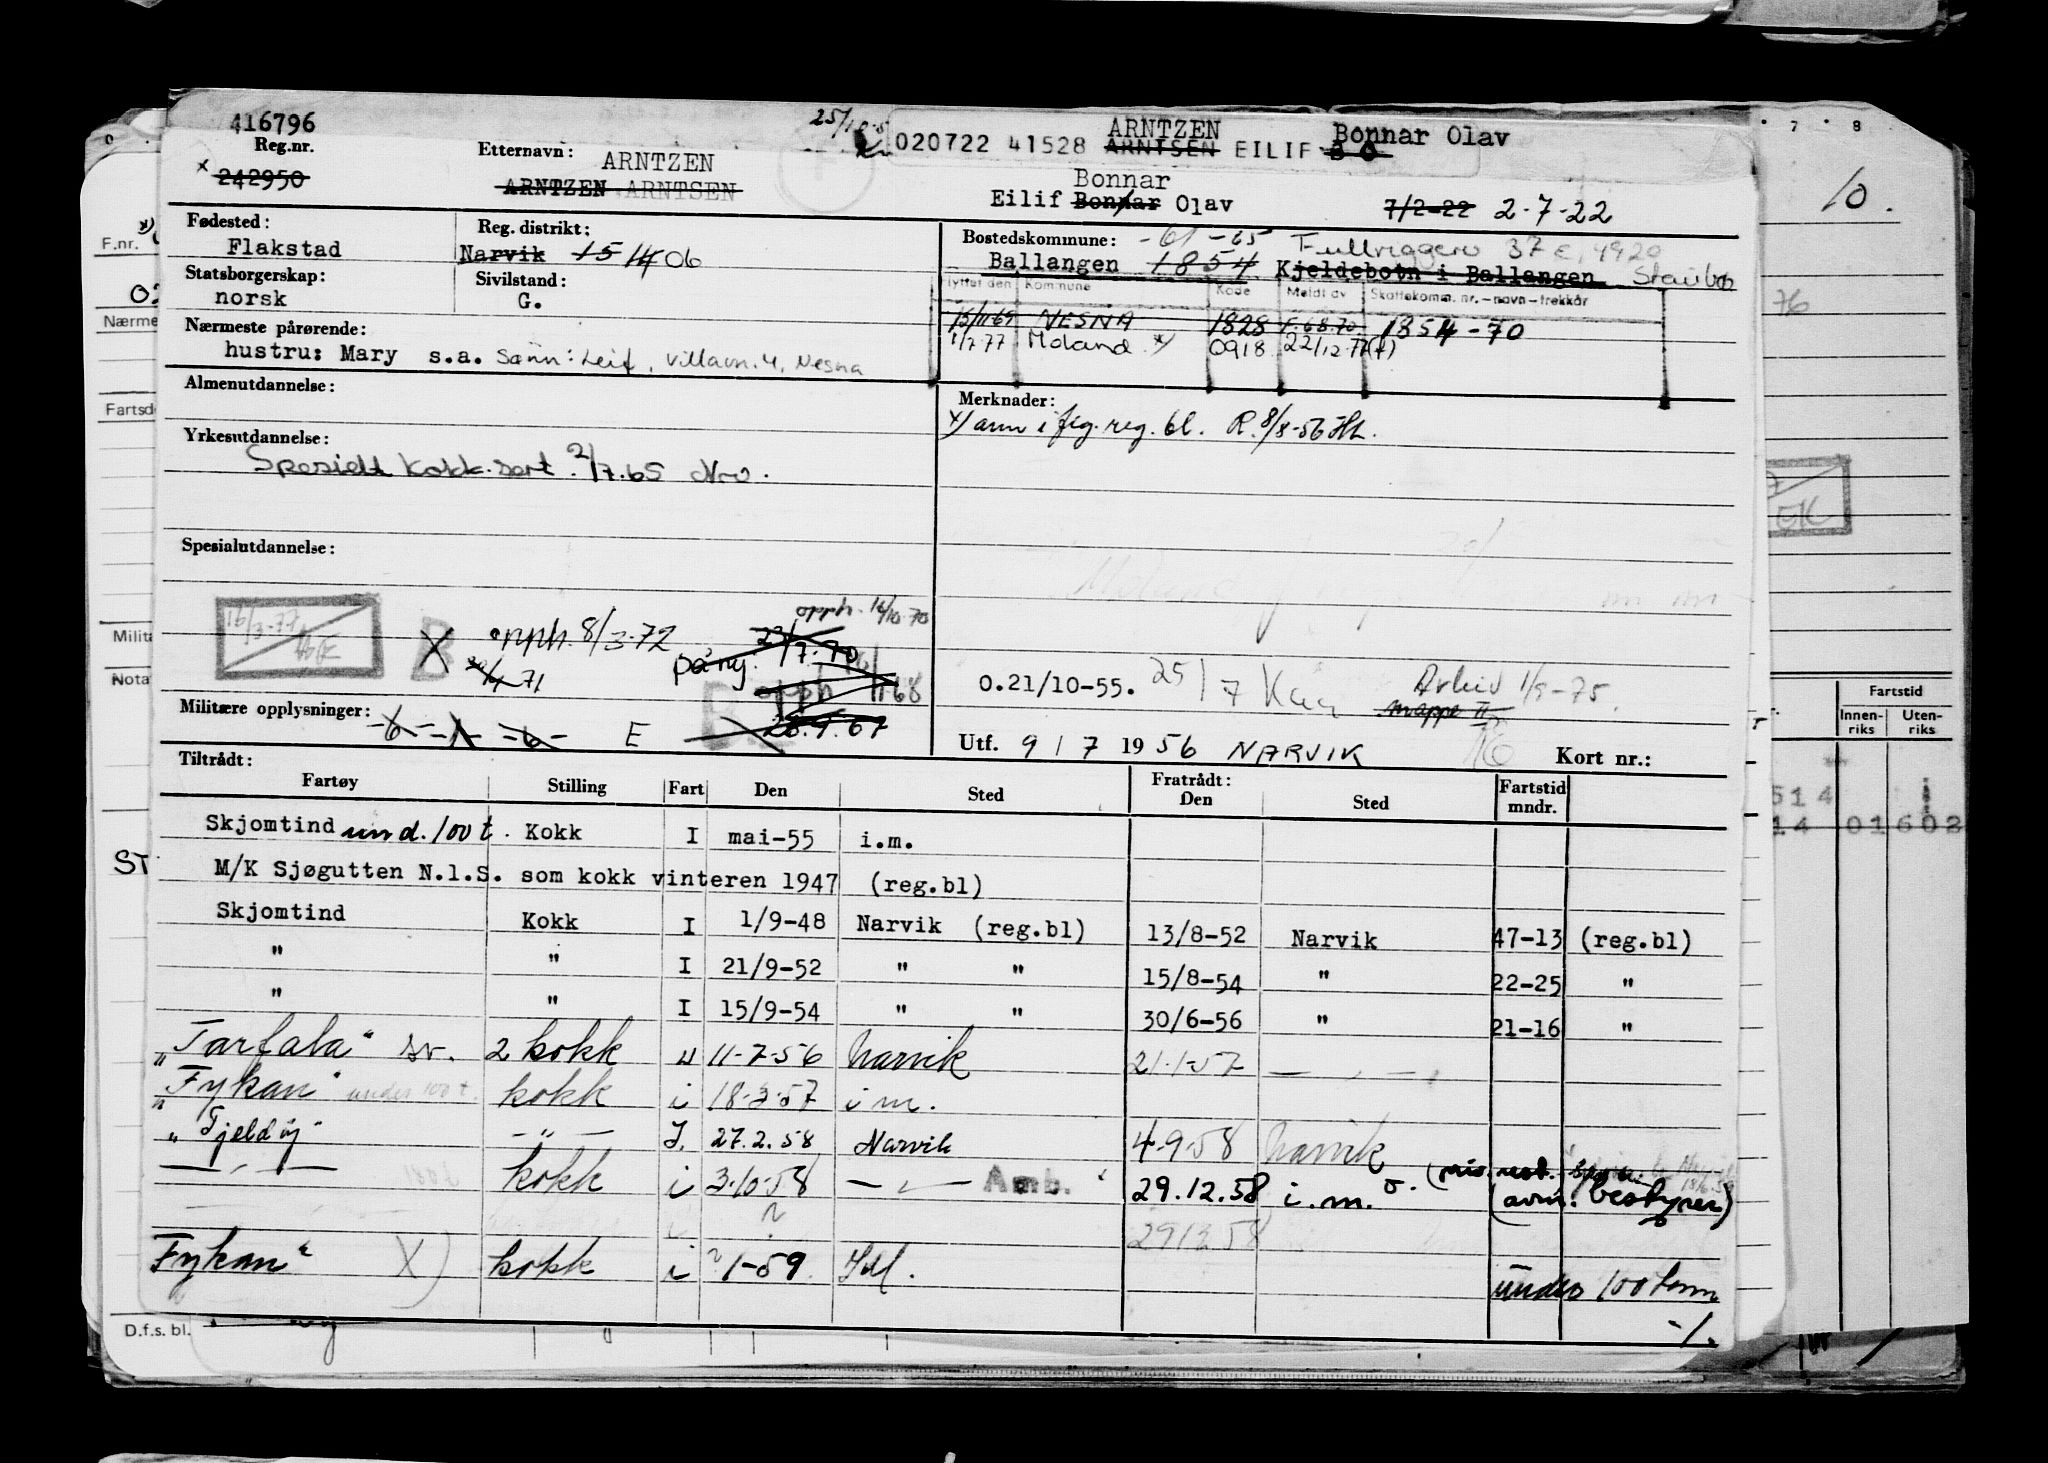 416796
Reg.nr.
x 242950
Etternavn: ARNTZEN
ARNTZEN ARNTSEN
020722 41528 ARNTSEN EILIF B O
ARNTZEN Bonnar Olav
Bonnar
Eilif Bonnar Olav 7/2-22 2-7-22
Fødested:
Flakstad
Reg. distrikt:
Narvik 15 14 06
Statsborgerskap:
norsk
Sivilstand:
G.
Nærmeste pårørende:
hustru: Mary s.a. Sønn: Leif, Villavn. 4, Nesna
Bostedskommune: -61 -65 Fullriggern 37 E, 4920
Ballangen 1854 Kjeldebotn i Ballangen Staubø
Flyttet den Kommune Kode Meldt av Skattekomm. nr.-navn-trekkår
15/11 69 NESNA 1828 F. 68.70. 1854-70
1/7-77 Moland x) 0918 22/12-77
Almenutdannelse:
Yrkesutdannelse:
Spesielt kokk.sert. 2/7.65
Spesialutdannelse:
Merknader:
x) ann i flg. reg. bl. R. 8/8-56
16/3-77
X B opph. 8/3-72
71
opph. 70
på ny. 7-70
opph 68
28.9.67
0.21/10-55. 25/7 Arkiv 1/9-75.
mappe II
Militære opplysninger: -6-1-6- E
Utf. 9/7 1956 NARVIK Kort nr.:
Tiltrådt: Fratrådt:
Fartøy Stilling Fart Den Sted Den Sted Fartstid mndr.
Skjomtind und. 100 t. Kokk I mai-55 i.m.
M/K Sjøgutten N.l.S. som kokk vinteren 1947 (reg.bl)
Skjomtind Kokk I 1/9-48 Narvik (reg.bl) 13/8-52 Narvik 47-13 (reg.bl)
" " I 21/9-52 " " 15/8-54 " 22-25 "
" " I 15/9-54 " " 30/6-56 " 21-16 "
"Tarfala" sv. 2 kokk u 11-7-56 Narvik 21-1-57 — " —
"Fykan" under 100 t. kokk i 18-3-57 i m.
"Tjeldøy" — " — I. 27.2.58 Narvik 4-9-58 Narvik
— " — kokk i 3-10-58 — " — Amb. 29.12.58 i.m.
(avm. bestyrer)
2912 58
Fykan" X) kokk i ? 1-59 I.M. under 100 tonn
-/.
F.nr.
Nærme
Fartsd
Milita
Nota
ST
D.f.s. bl.
7 8
10.
76
Fartstid
Innen-riks Uten-riks
514
14 01602